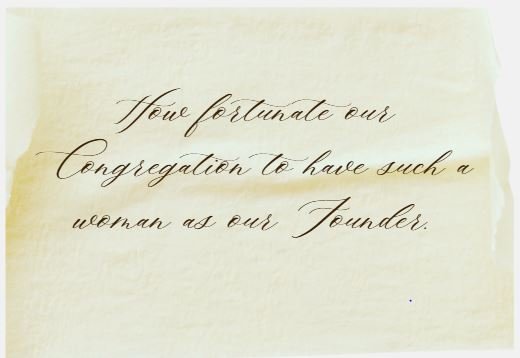 How fortunate our
Congregation to have such a
woman as our Founder.